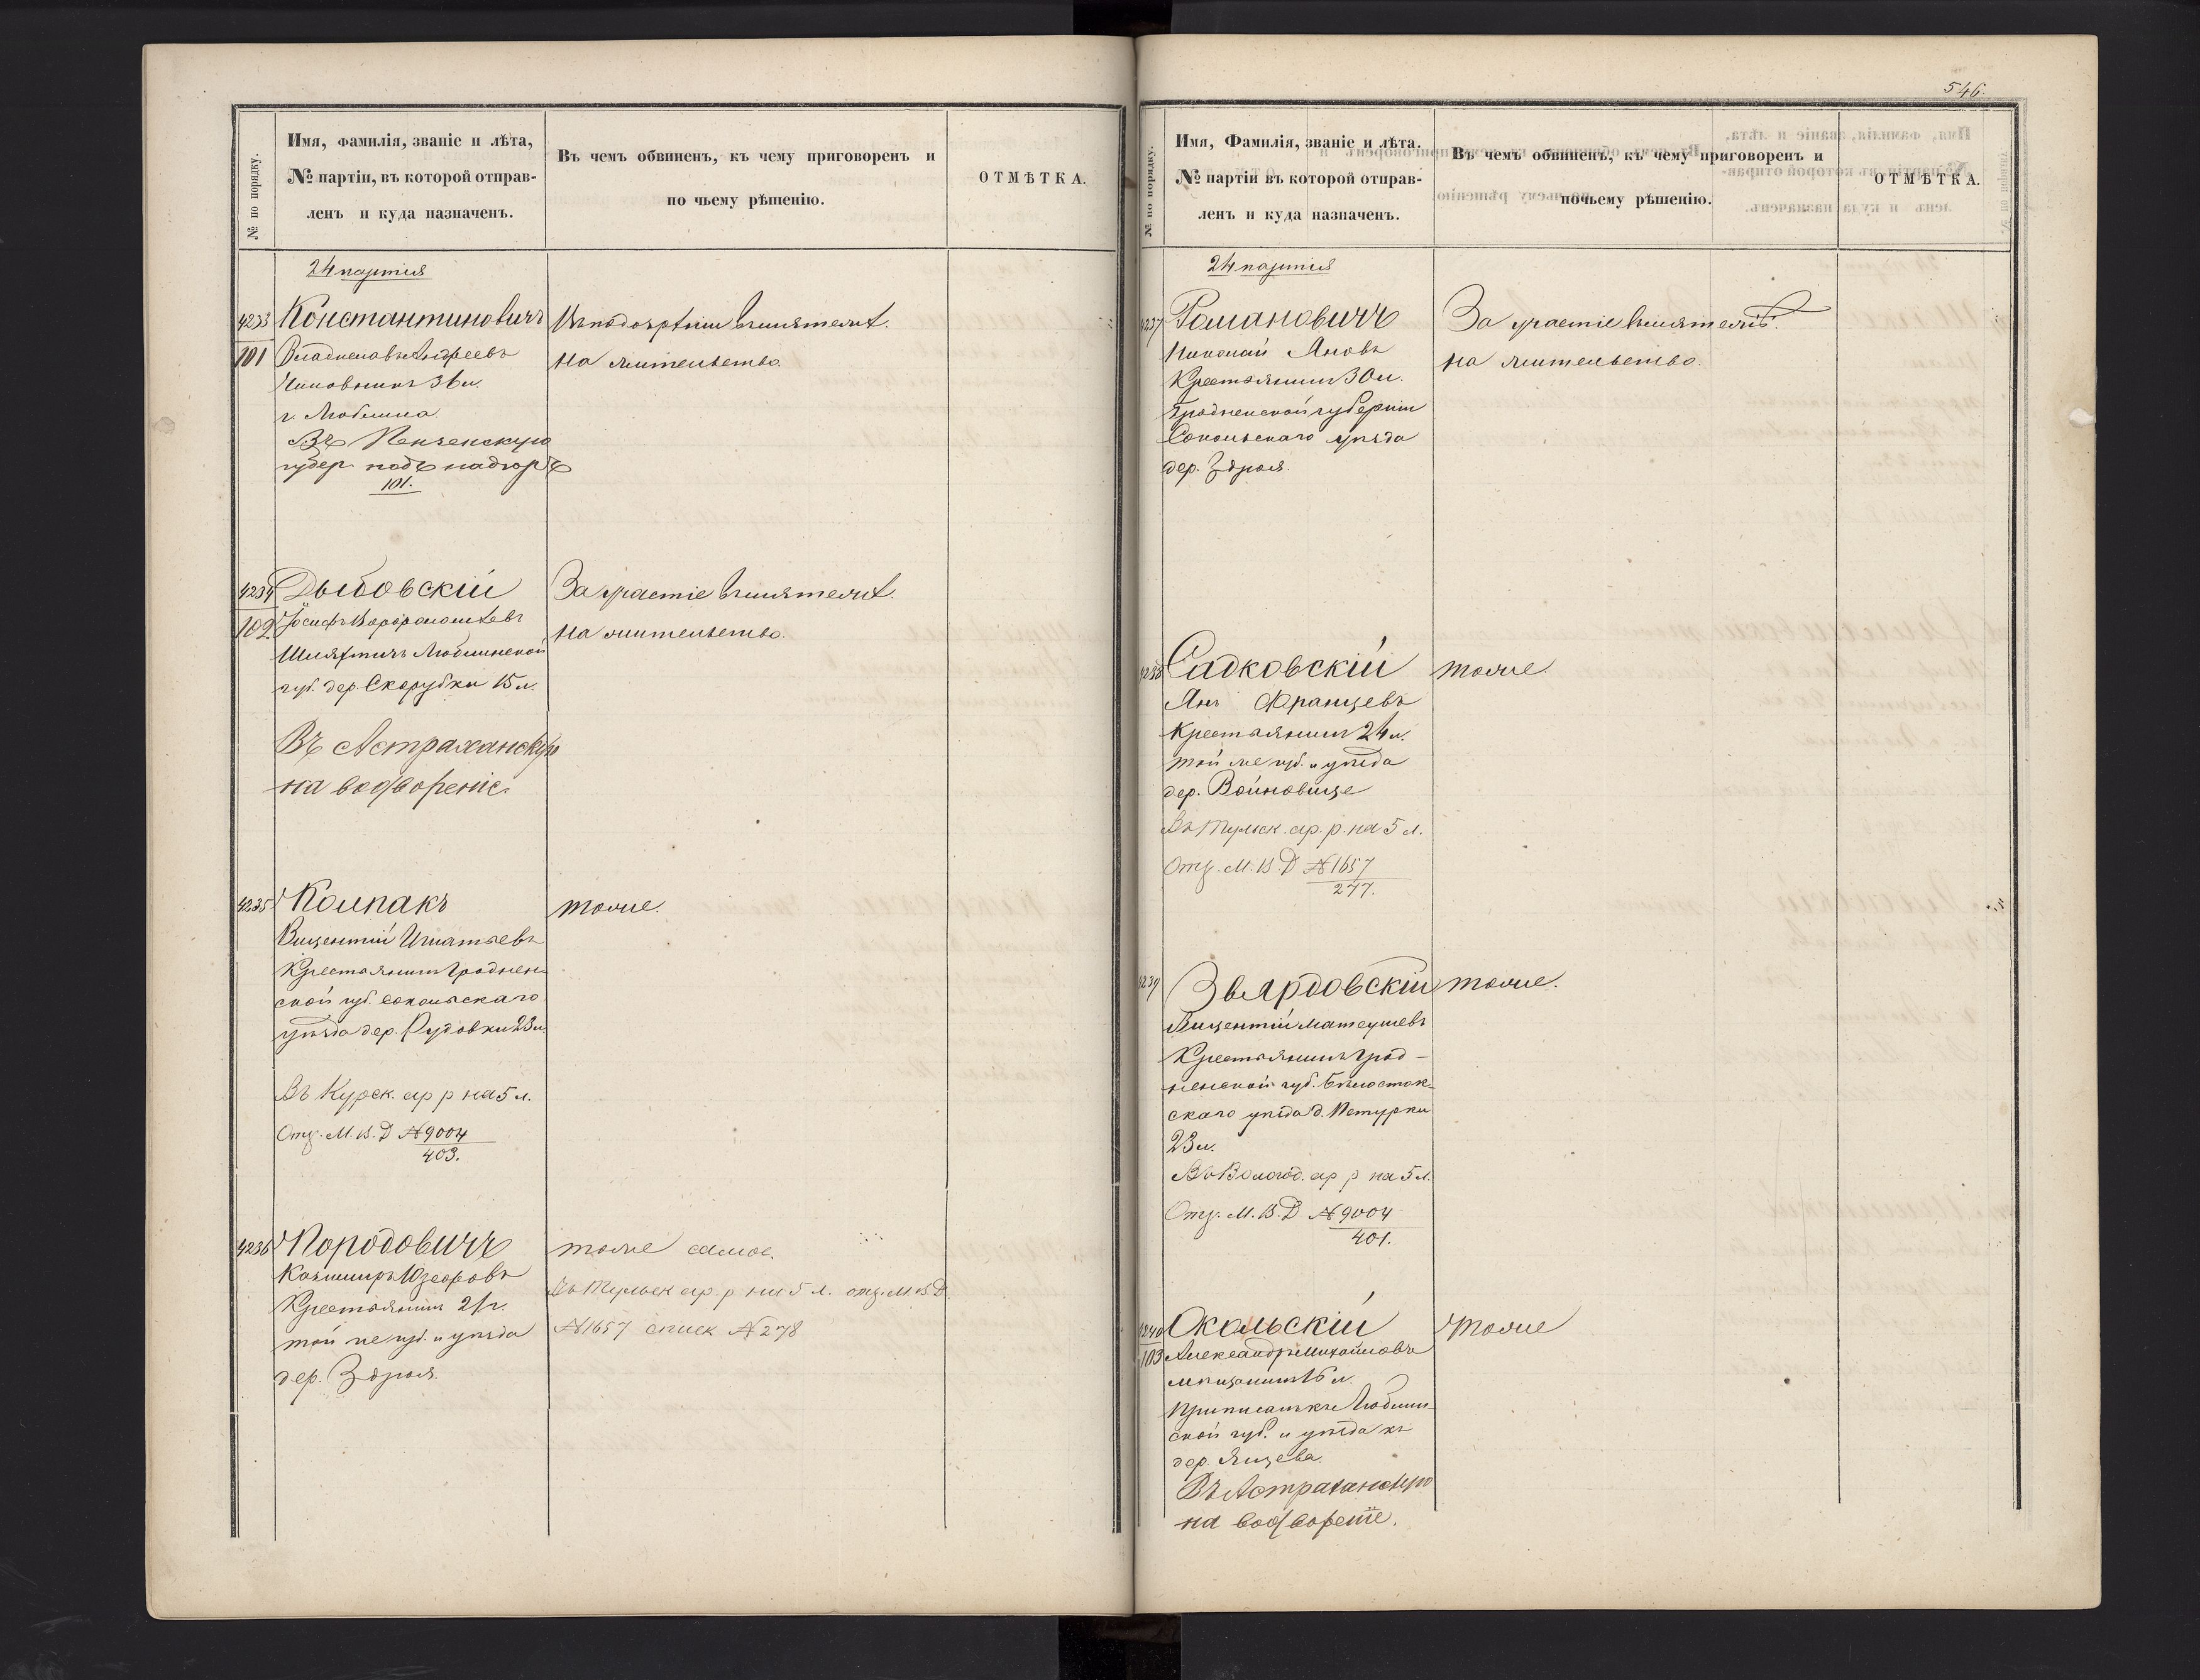 № по порядку.
Имя, фамилія, званіе и лѣта,
№ партіи, въ которой отправ-
ленъ и куда назначенъ.
Въ чемъ обвиненъ, къ чему приговоренъ и
по чьему рѣшенію.
ОТМѢТКА.
24 партія
4233
101
Константиновичъ
Владиславъ Андреевъ
Чиновникъ 36 л.
г. Люблина.
Въ Пензенскую
губер. подъ надзоръ
101.
Въ подозрѣніи въ мятежѣ.
На жительство.
4234
102
Дыбовскій
Іосифъ Варфоломѣевъ
Шляхтичъ Люблинской
губ. дер. Скорубки 15 л.
Въ Астраханскую
на водвореніе.
За участіе въ мятежѣ.
На жительство.
4235
Колпакъ
Вицентій Игнатьевъ
Крестьянинъ Гроднен-
ской губ. Сокольскаго
уѣзда дер. Рудовки 23 л.
Въ Курск. ар. р. на 5 л.
Отз. М. В. Д. № 9004
403.
тоже.
4236
Породовичъ
Казимиръ Юзефовъ
Крестьянинъ 21 г.
той же губ. и уѣзда
дер. Здроя.
тоже самое.
Въ Тульск. ар. р. на 5 л. отз. М. В. Д.
№ 1657 списк № 278
546.
№ по порядку.
Имя, Фамилія, званіе и лѣта.
№ партіи въ которой отправ-
ленъ и куда назначенъ.
Въ чемъ обвиненъ, къ чему приговоренъ и
почьему рѣшенію.
ОТМѢТКА.
24 партія
4237
Романовичъ
Николай Яновъ
Крестьянинъ 30 л.
Гродненской губерніи
Сокольскаго уѣзда
дер. Здроя.
За участіе въ мятежѣ.
На жительство.
4238
Садковскій
Янъ Францевъ
Крестьянинъ 24 л.
той же губ. и уѣзда
дер. Войновице
Въ Тульск. ар. р. на 5 л.
Отз. М. В. Д № 1657
277.
тоже.
4239
Звярдовскій
Вицентій Матеушевъ
Крестьянинъ Грод-
ненской губ. Бѣлосток-
скаго уѣзда д. Петурки
23 л.
Въ Вологод. ар р на 5 л.
Отз. М. В. Д № 9004
401.
тоже.
4240
103
Окольскій
Александръ Михайловъ
мѣщанинъ 16 л.
Приписанъ къ Люблин-
ской губ. и уѣзда къ
дер. Ящева.
Въ Астраханскую
на водвореніе.
тоже